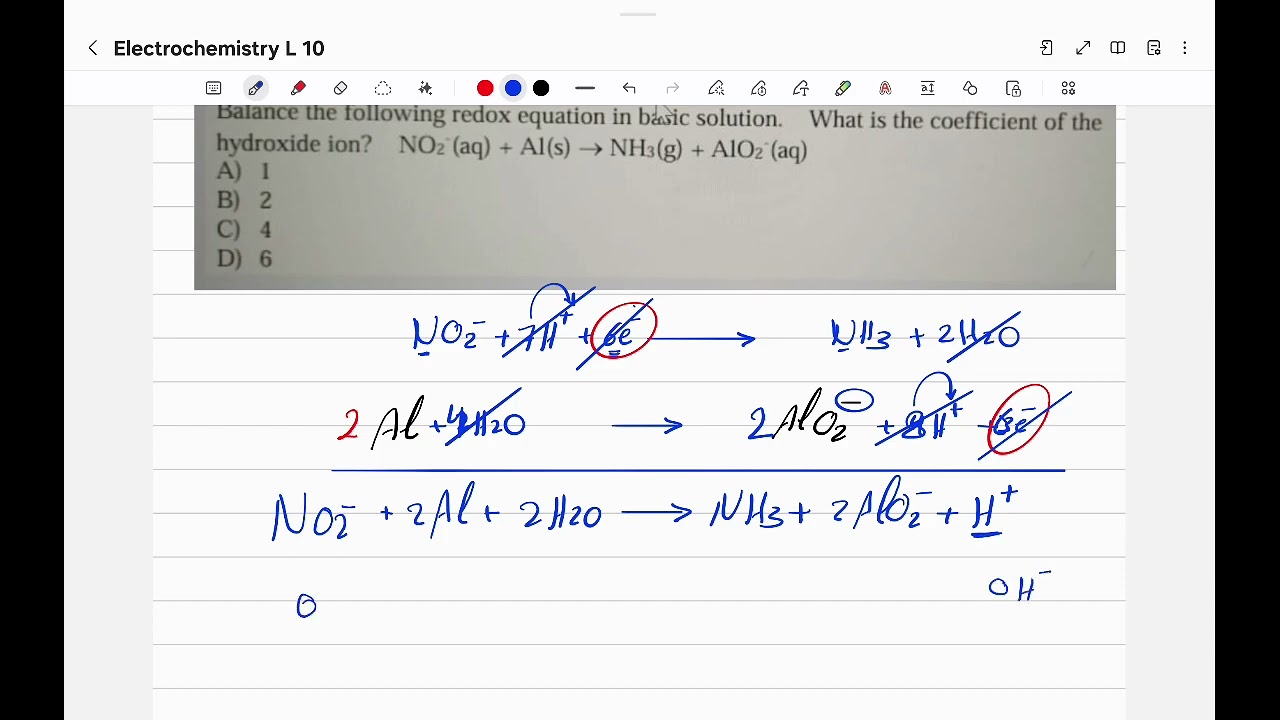 Electrochemistry L 10
Balance the following redox equation in basic solution. What is the coefficient of the
hydroxide ion? NO₂⁻(aq) + Al(s) → NH₃(g) + AlO₂⁻(aq)
A) 1
B) 2
C) 4
D) 6
NO₂⁻ + 7H⁺ + 6e⁻ → NH₃ + 2H₂O
2Al + 4H₂O → 2AlO₂⁻ + 8H⁺ + 6e⁻
NO₂⁻ + 2Al + 2H₂O → NH₃ + 2AlO₂⁻ + H⁺
O OH⁻